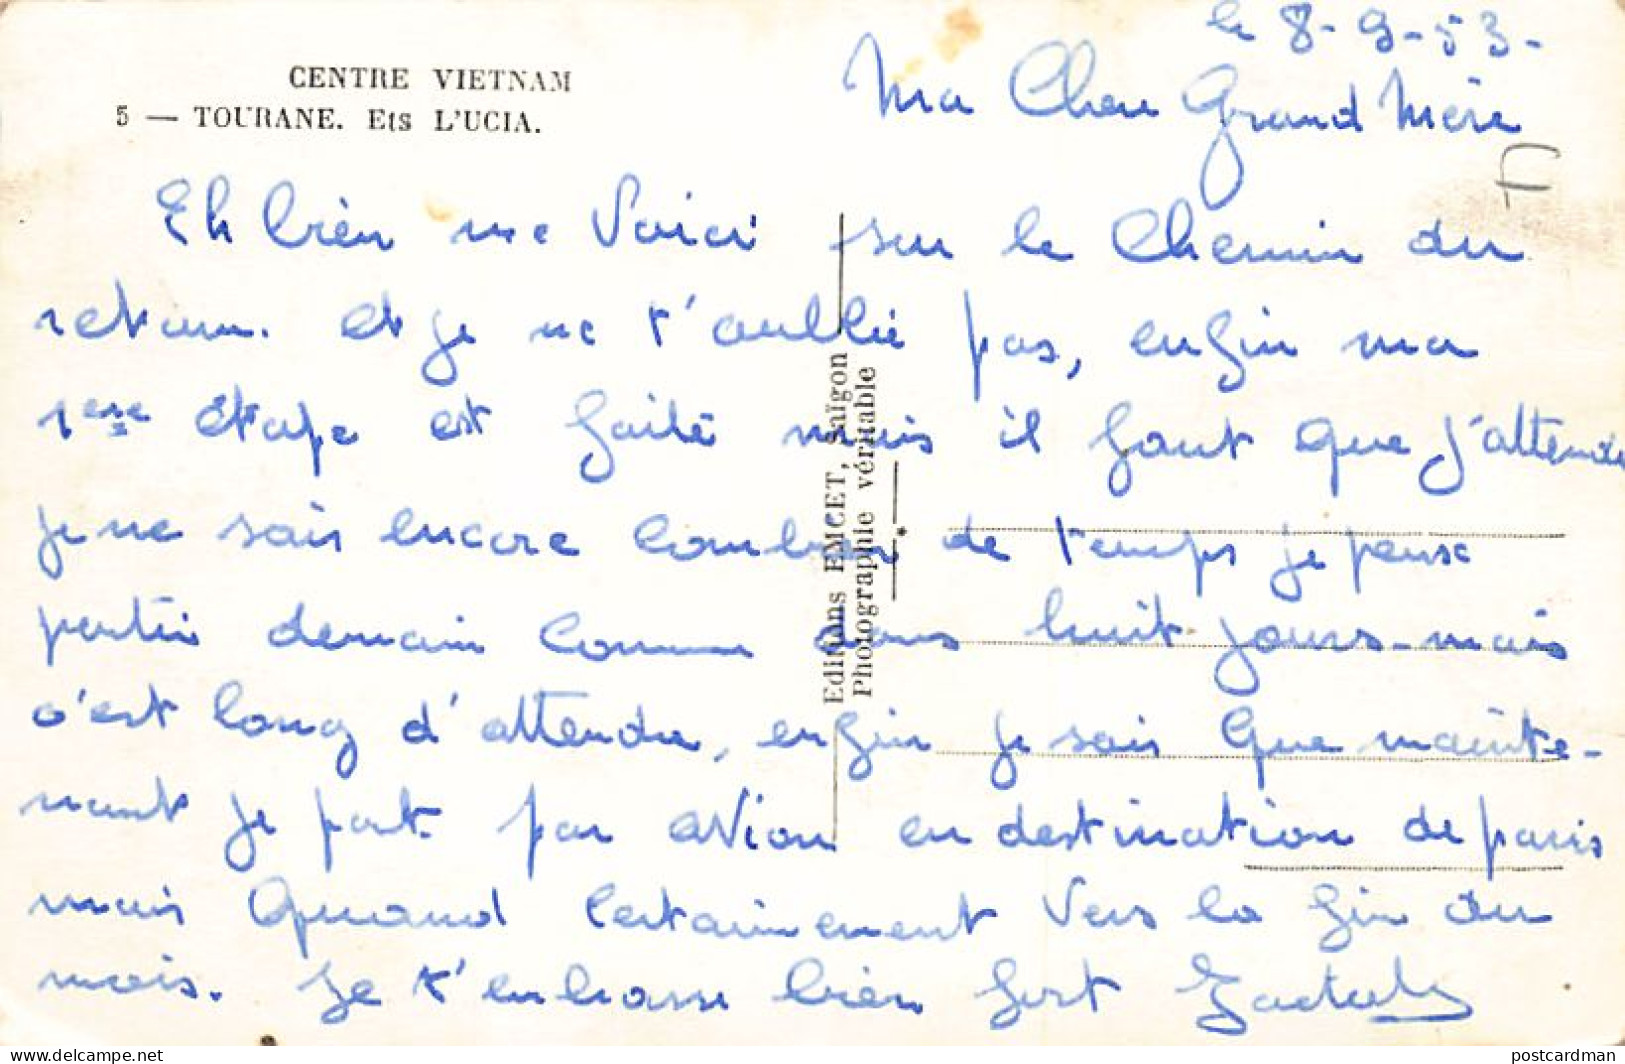 CENTRE VIETNAM
5 — TOURANE. Ets L'UCIA.
le 8-9-53-
Ma Cher Grand Mère
Eh bien me Voici sur le Chemin du
retour. et je ne t'oublie pas, enfin ma
1ere étape est faite mais il faut que j'attende
je ne sais encore combien de temps je pense
partir demain comme dans huit jours-mais
c'est long d'attendre, enfin je sais que mainte-
nant je part par avion en destination de paris
mais quand certainement vers la fin du
mois. Je t'embrasse bien fort
Editions EMCET, Saïgon
Photographie véritable
delcampe.net
postcardman